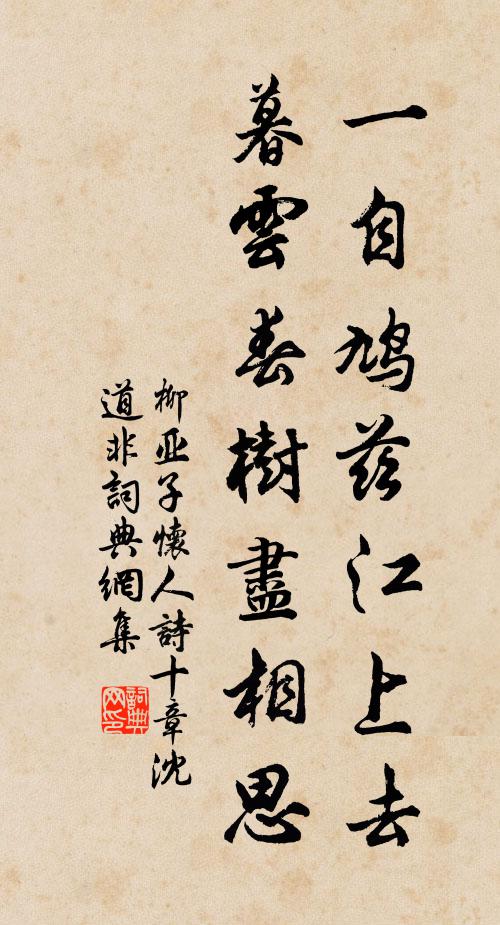 一自鳩茲江上去
暮雲春樹盡相思
柳亚子懷人詩十章沈
道非詞典網集
詞典网印